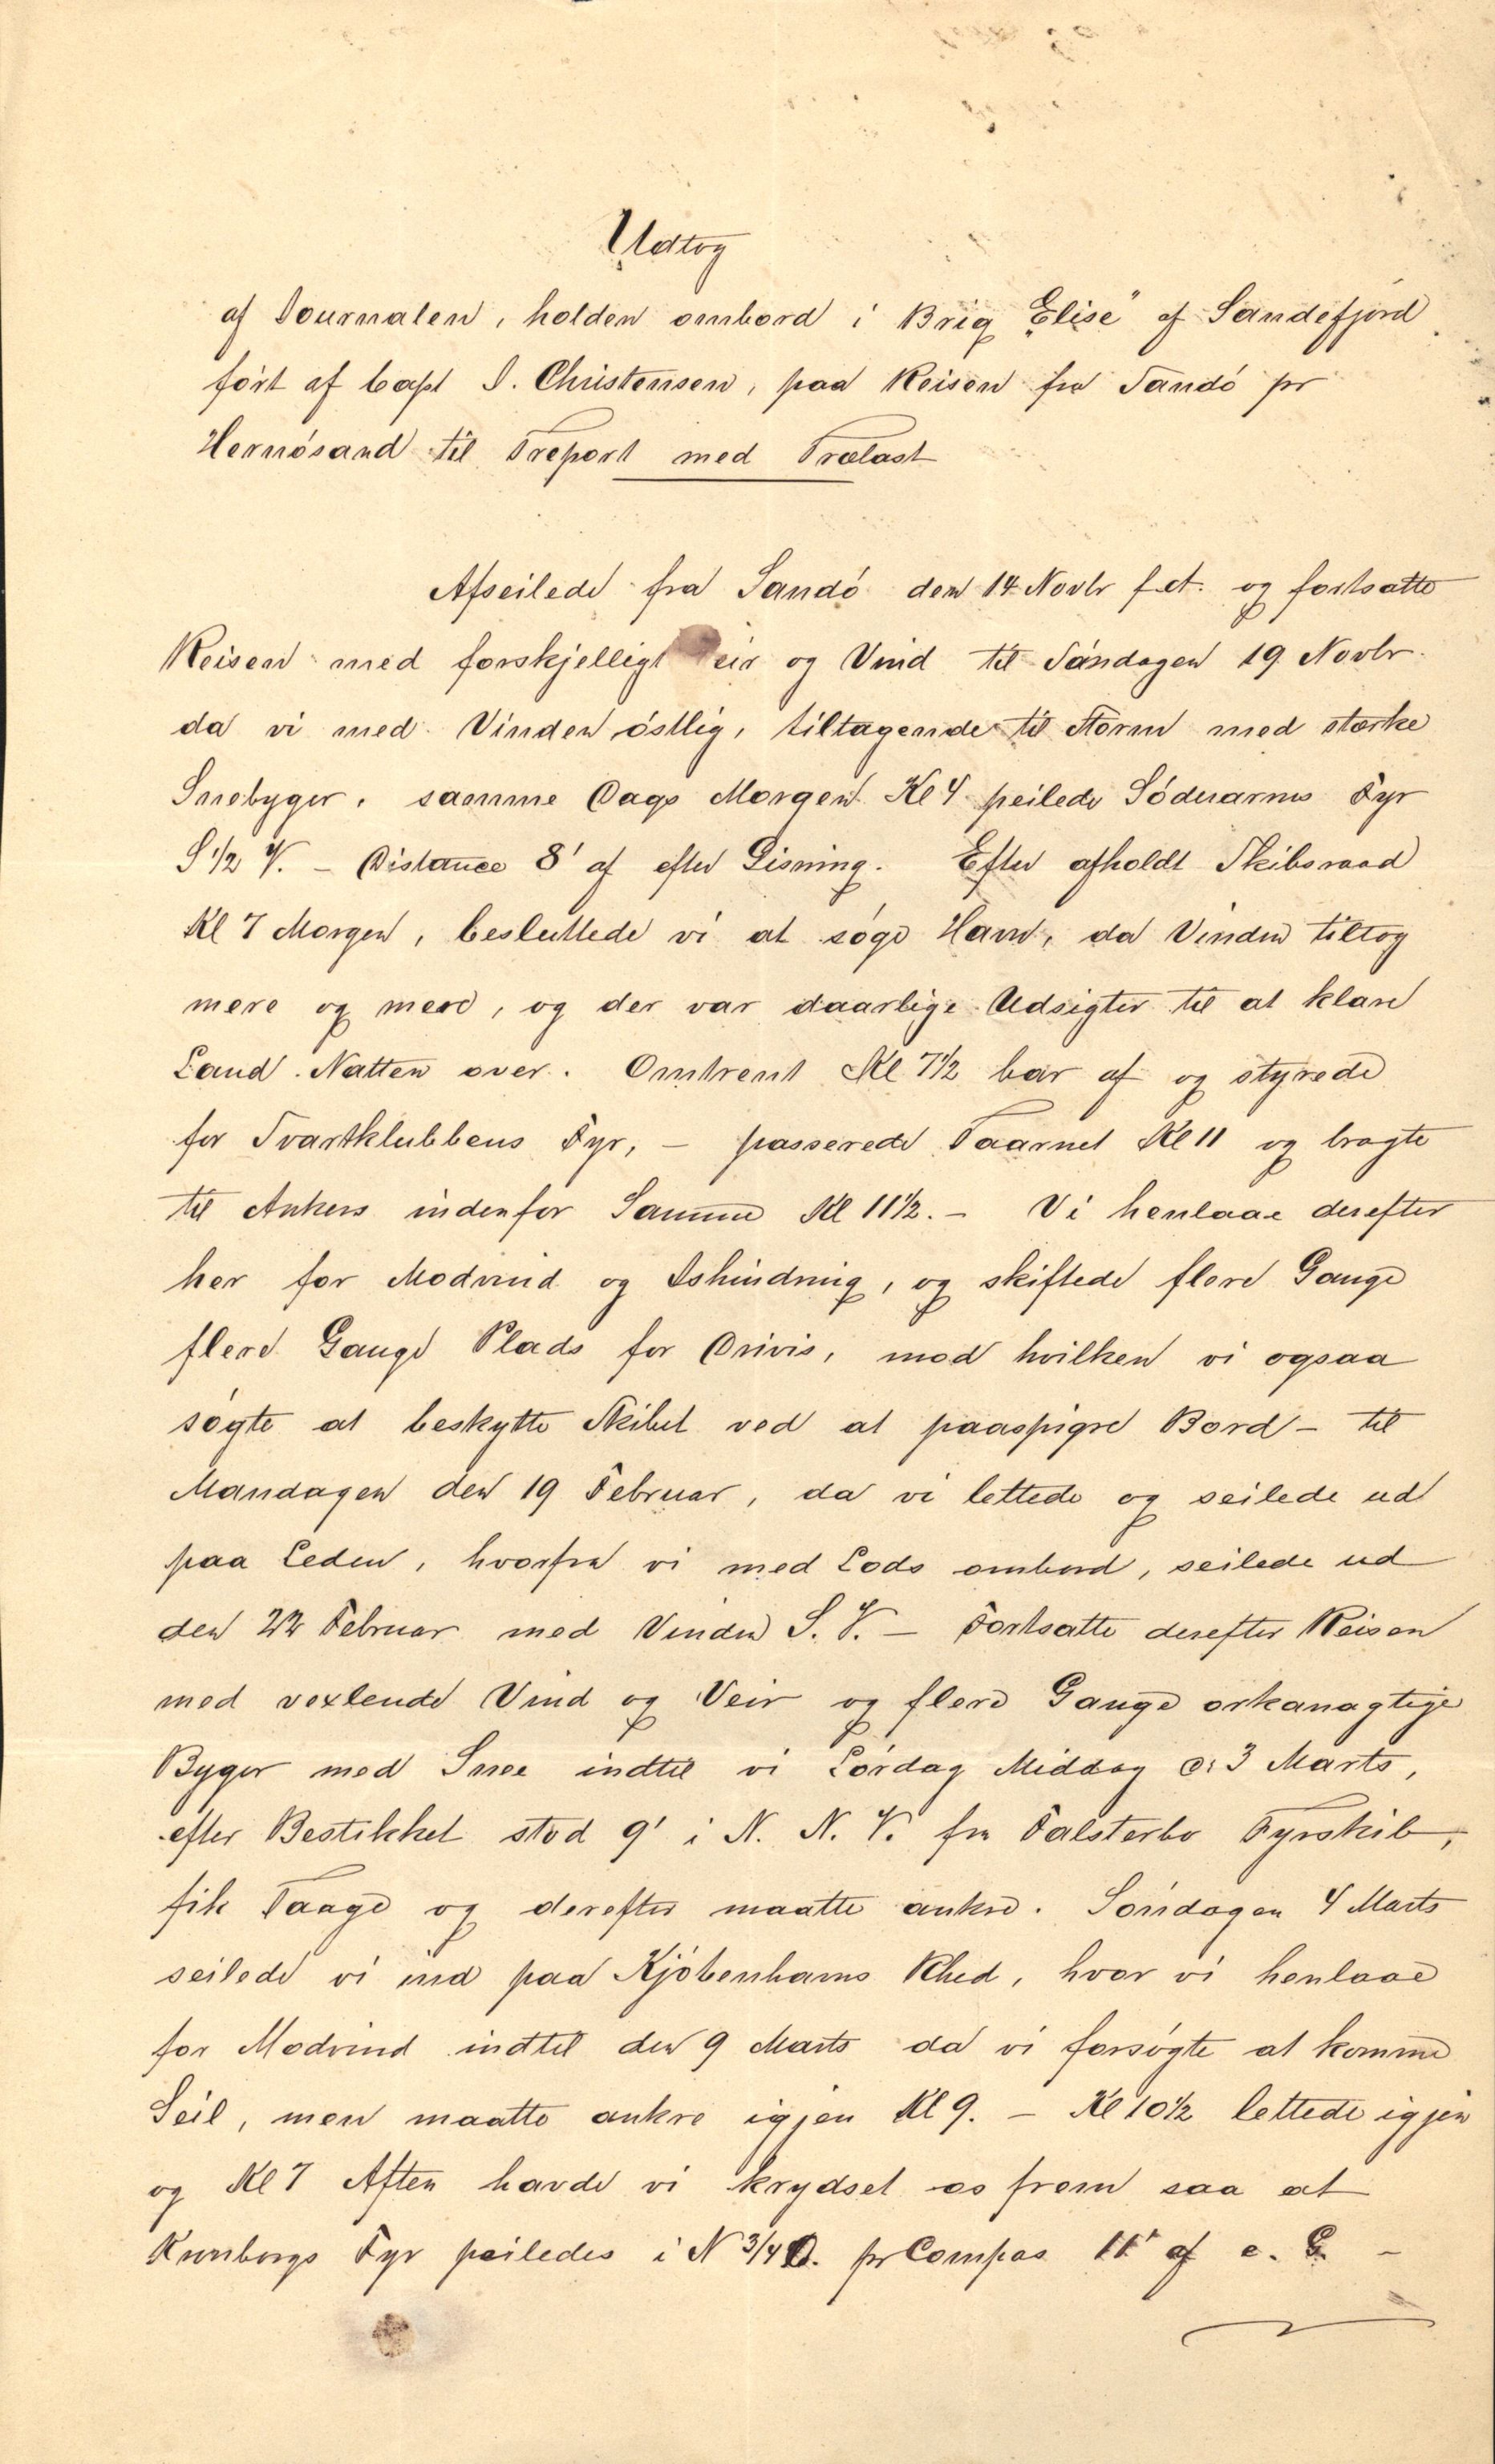 Udtog
af Journalen, holden ombord i Brig „Elise" af Sandefjord
ført af Capt J. Christensen, paa Reisen fra Sandö pr
Hernösand til Treport med Trælast
Afseilede fra Sandö den 14 Novbr f. A. og fortsatte
Reisen med forskjelligt Veir og Vind til Söndagen 19 Novbr.
da vi med Vinden östlig, tiltagende til Storm med stærke
Snebyger, samme Dags Morgen Kl 4 peilede Söderarms Fyr
S ½ V. – Distance 8' af efter Gisning. Efter afholdt Skibsraad
Kl 7 Morgen, besluttede vi at söge Havn, da Vinden tiltog
mere og mere, og der var daarlige Udsigter til at klare
Land Natten over. Omtrent Kl 7½ bar af og styrede
for Svartklubbens Fyr, – passerede Taarnet Kl 11 og bragte
til Ankers indenfor Samme Kl 11½. – Vi henlaae derefter
her for Modvind og Ishindring, og skiftede flere Gange
flere Gange Plads for Drivis, mod hvilken vi ogsaa
sögte at beskytte Skibet ved at paaspigre Bord – til
Mandagen den 19 Februar, da vi lettede og seilede ud
paa Leden, hvorfra vi med Lods ombord, seilede ud
den 22 Februar med Vinden S. V. – Fortsatte derefter Reisen
med vexlende Vind og Veir og flere Gange orkanagtige
Byger med Snee indtil vi Lördag Middag d: 3 Marts,
efter Bestikket stod 9' i N. N. V. fra Falsterbo Fyrskib,
fik Taage og derefter maatte ankre. Söndagen 4 Marts
seilede vi ind paa Kjöbenhavns Rhed, hvor vi henlaae
for Modvind indtil den 9 Marts da vi forsögte at komme
Seil, men maatte ankre igjen Kl 9. – Kl 10½ lettede igjen
og Kl 7 Aften havde vi krydset os frem saa at
Kronborgs Fyr peiledes i N ¾ O. pr Compas 11' af e. G. –